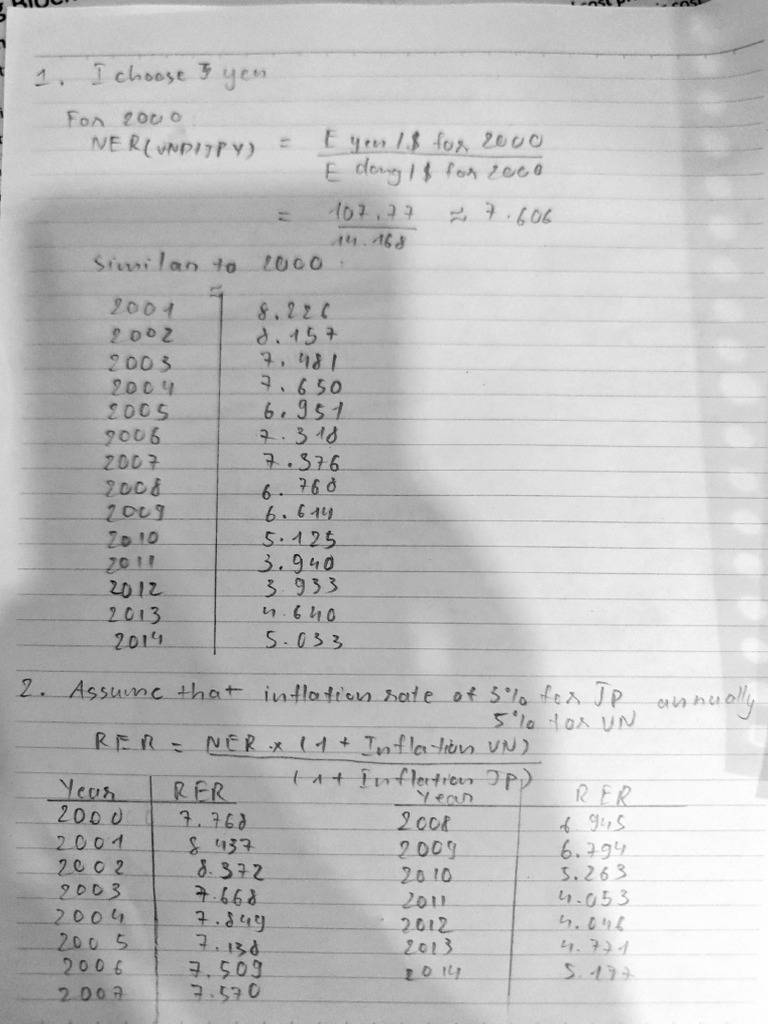 1. I choose yen
For 2000
NER(VND/JPY) = E yen/$ for 2000
E dong/$ for 2000
= 107.77 ≈ 7.606
14.168
Similar to 2000.
2001 8.226
2002 8.157
2003 7.481
2004 7.650
2005 6.951
2006 7.318
2007 7.376
2008 6.768
2009 6.614
2010 5.125
2011 3.940
2012 3.933
2013 4.640
2014 5.033
2. Assume that inflation rate of 3% for JP annually
5% for VN
RER = NER x (1 + Inflation VN)
(1 + Inflation JP)
Year RER Year RER
2000 7.768 2008 6.945
2001 8.437 2009 6.794
2002 8.372 2010 5.263
2003 7.668 2011 4.053
2004 7.849 2012 4.046
2005 7.138 2013 4.771
2006 7.509 2014 5.177
2007 7.570